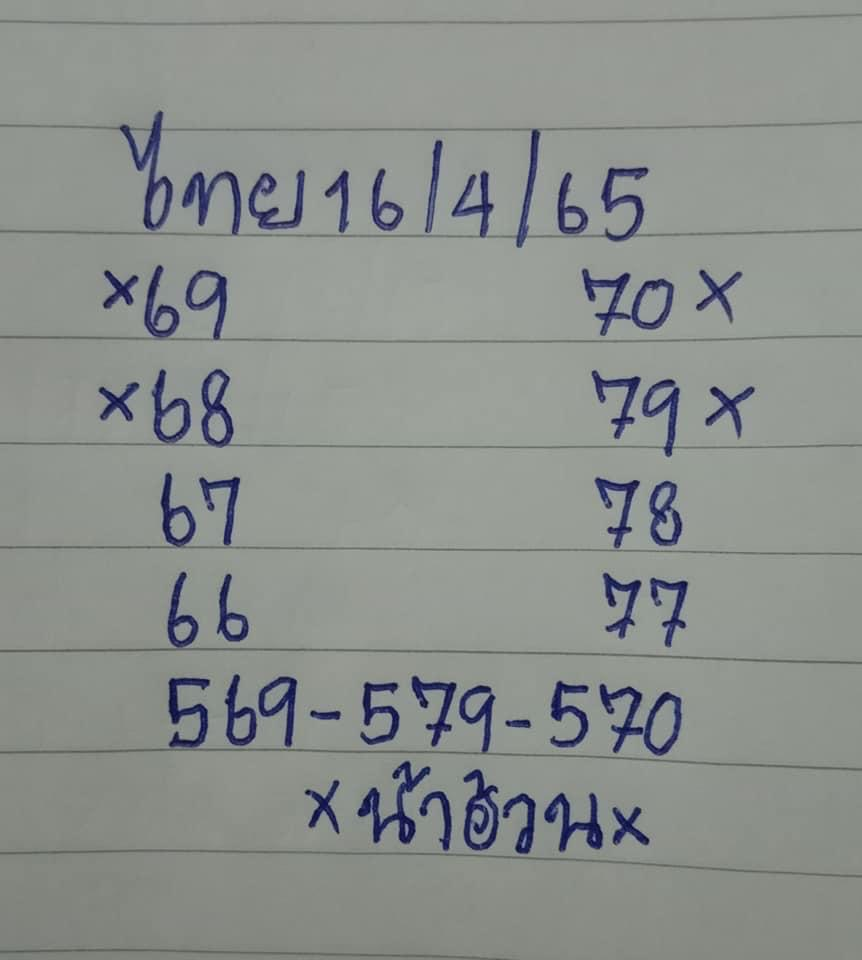 ไทย 16/4/65
×69 70×
×68 79×
67 78
66 77
569-579-570
×น้าอ้วน×